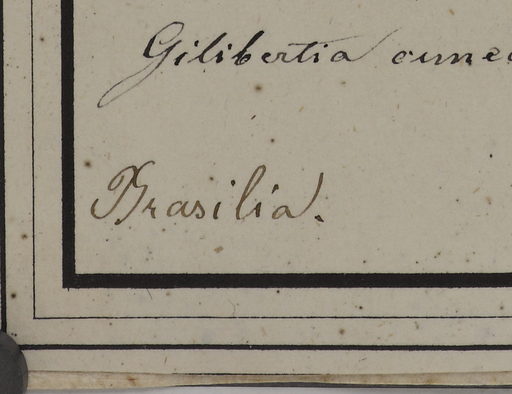 Gilibertia cunea
Brasilia.